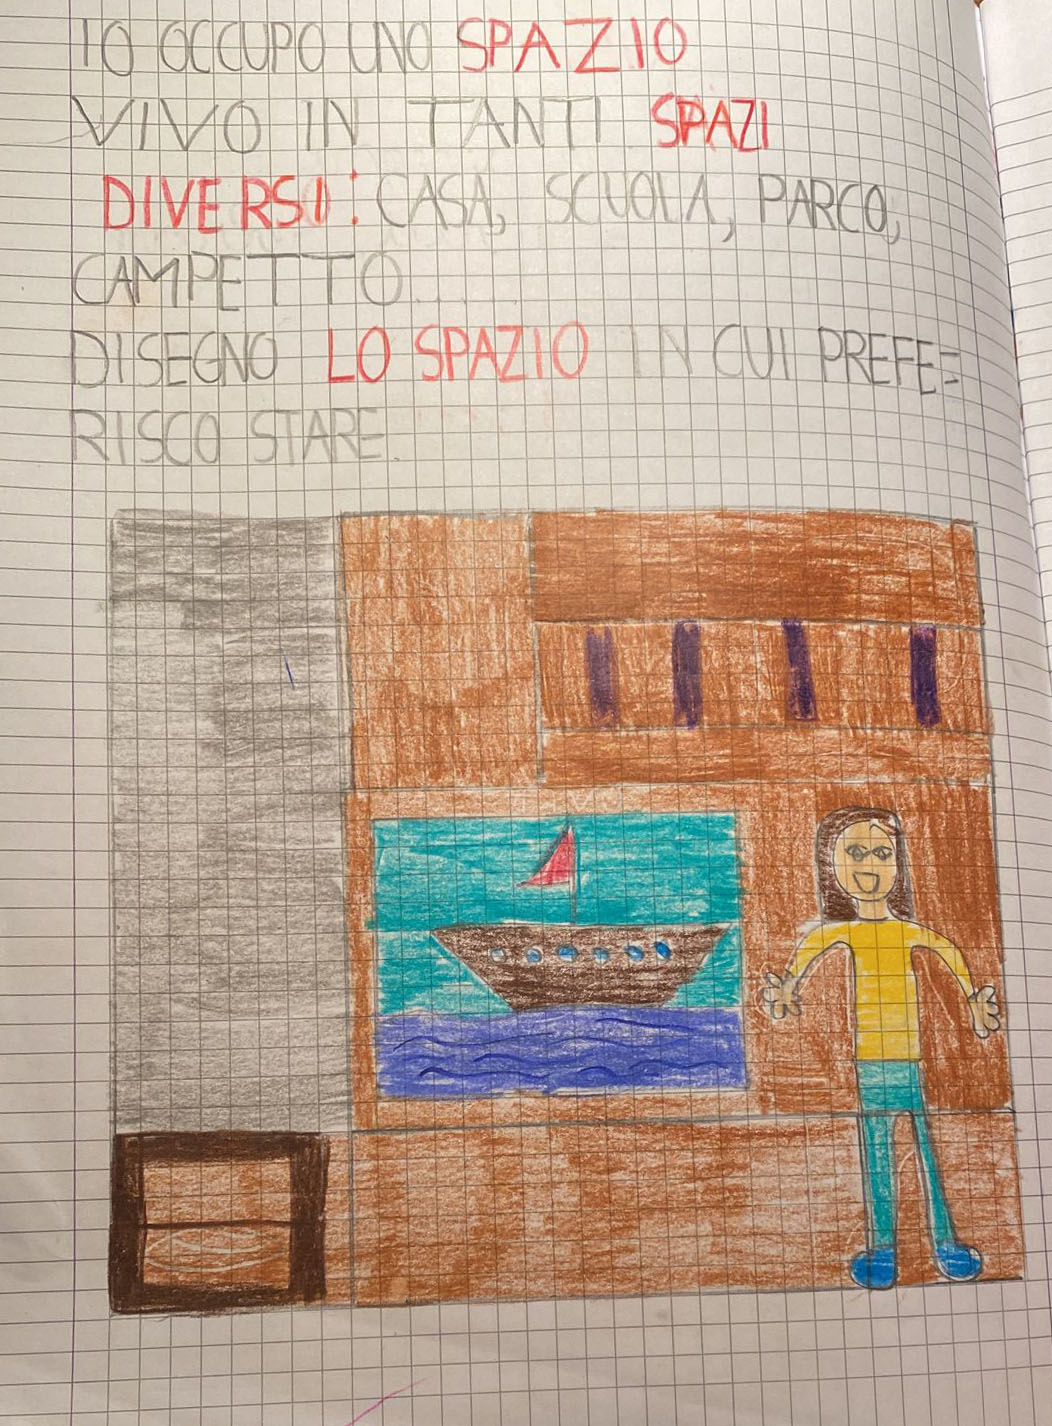 IO OCCUPO UNO SPAZIO
VIVO IN TANTI SPAZI
DIVERSI: CASA, SCUOLA, PARCO,
CAMPETTO......
DISEGNO LO SPAZIO IN CUI PREFE=
RISCO STARE.